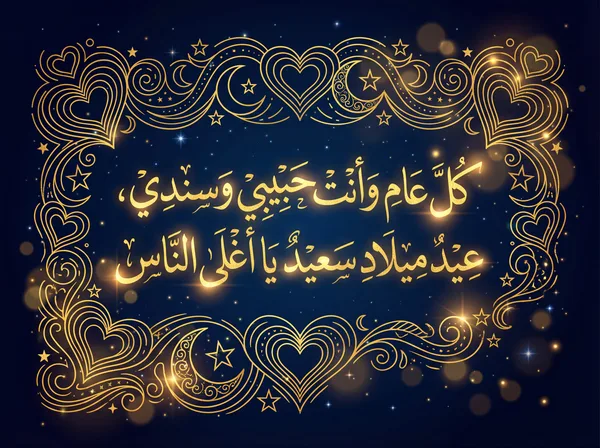 كُلَّ عَامِ وَأَنْت حَبِيبِي وَسَندِي،
عِيْدُ مِيلَادِ سَعِيْدٌ يَا أَغْلَى النَّاس